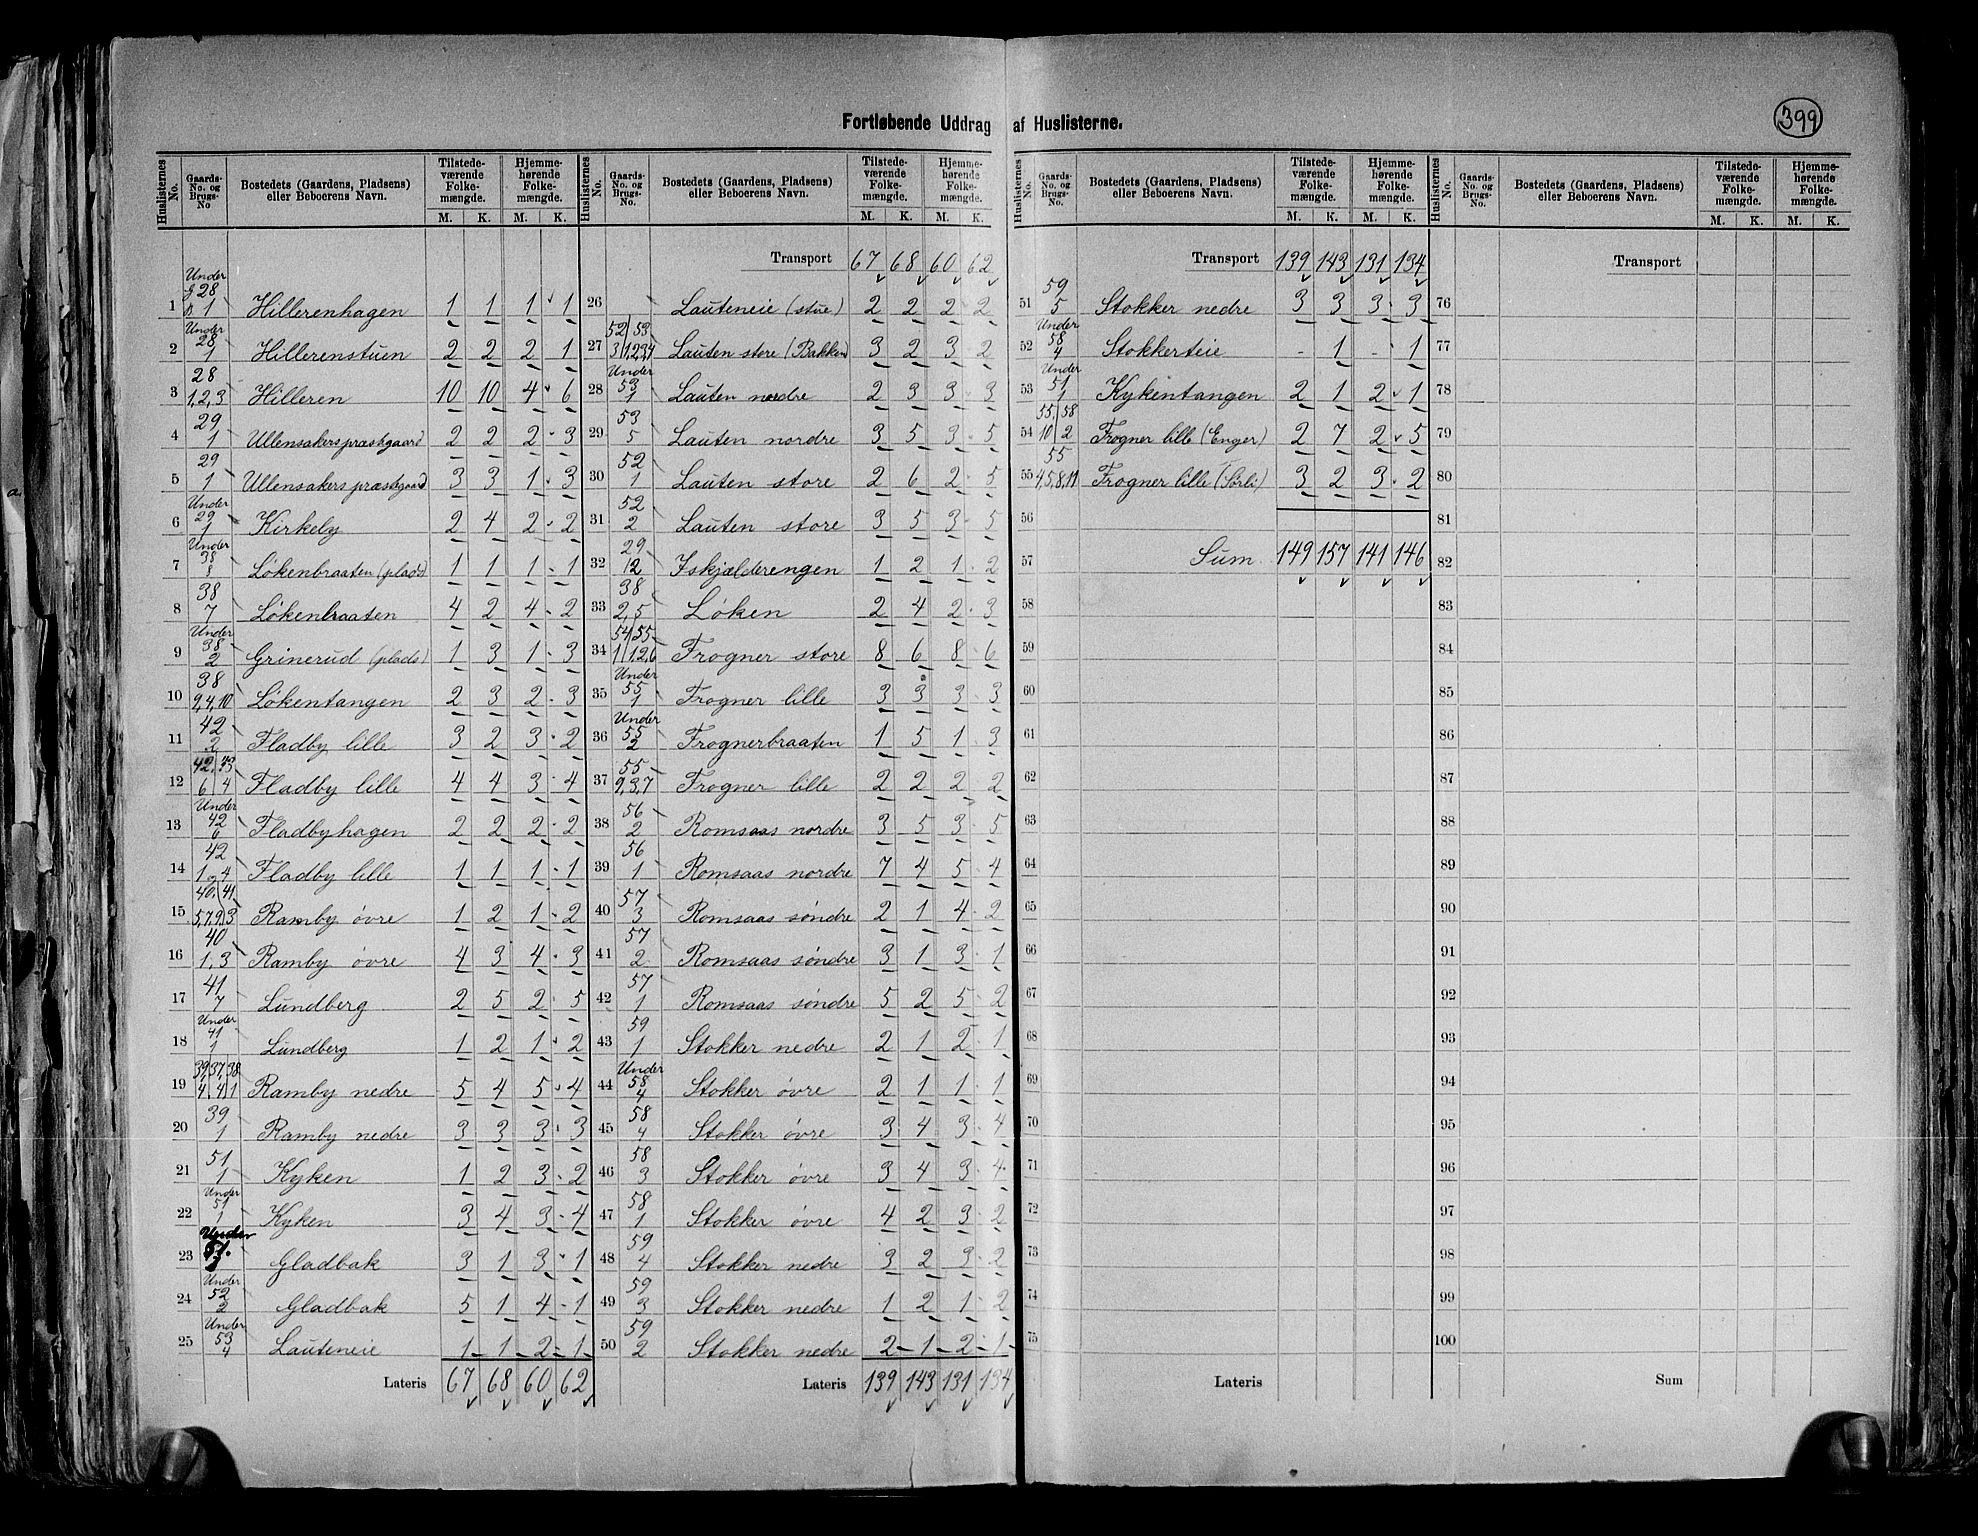 399
Fortløbende Uddrag af Huslisterne.
Huslisternes No. | Gaards-No. og Brugs-No | Bostedets (Gaardens, Pladsens) eller Beboerens Navn. | Tilstedeværende Folkemængde. M. K. | Hjemmehørende Folkemængde. M. K.
1 | Under g 28 B 1 | Hillerenhagen | 1 | 1 | 1 | 1
2 | Under 28 1 | Hillerenstuen | 2 | 2 | 2 | 1
3 | 28 1,2,3 | Hilleren | 10 | 10 | 4 | 6
4 | 29 1 | Ullensakers præstgaard | 2 | 2 | 2 | 3
5 | 29 1 | Ullensakers præstegaard | 3 | 3 | 1 | 3
6 | Under 29 1 | Kirkeby | 2 | 4 | 2 | 2
7 | Under 38 8 | Løkenbraaten (plads) | 1 | 1 | 1 | 1
8 | 38 7 | Løkenbraaten | 4 | 2 | 4 | 2
9 | Under 38 2 | Grinerud (plads) | 1 | 3 | 1 | 3
10 | 38 9,4,10 | Løkentangen | 2 | 3 | 2 | 3
11 | 42 2 | Fladby lille | 3 | 2 | 3 | 2
12 | 42, 43 6 4 | Fladby lille | 4 | 4 | 3 | 4
13 | Under 42 6 | Fladbyhagen | 2 | 2 | 2 | 2
14 | 42 1 og 4 | Fladby lille | 1 | 1 | 1 | 1
15 | 40, 41 5,7,9,3 | Ramby øvre | 1 | 2 | 1 | 2
16 | 40 1,3 | Ramby øvre | 4 | 3 | 4 | 3
17 | 41 7 | Lundberg | 2 | 5 | 2 | 5
18 | Under 41 1 | Lundberg | 1 | 2 | 1 | 2
19 | 39,37,38 4, 4, 1 | Ramby nedre | 5 | 4 | 5 | 4
20 | 39 1 | Ramby nedre | 3 | 3 | 3 | 3
21 | 51 1 | Kyken | 1 | 2 | 3 | 2
22 | Under 51 1 | Kyken | 3 | 4 | 3 | 4
23 | Under 51. | Gladbak | 3 | 1 | 3 | 1
24 | Under 52 2 | Gladbak | 5 | 1 | 4 | 1
25 | Under 53 4 | Lauteneie | 1 | 1 | 2 | 1
Lateris | 67 | 68 | 60 | 62
Huslisternes No. | Gaards-No. og Brugs-No. | Bostedets (Gaardens, Pladsens) eller Beboerens Navn. | Tilstedeværende Folkemængde. M. K. | Hjemmehørende Folkemængde. M. K.
Transport | 67 | 68 | 60 | 62
26 | Lauteneie (store) | 2 | 2 | 2 | 2
27 | 52 53 3 1,2,3,4 | Lauten store (Bakken) | 3 | 2 | 3 | 2
28 | Under 53 1 | Lauten nordre | 2 | 3 | 3 | 3
29 | 53 5 | Lauten nordre | 3 | 5 | 3 | 5
30 | 52 1 | Lauten store | 2 | 6 | 2 | 5
31 | 52 2 | Lauten store | 3 | 5 | 3 | 5
32 | 29 12 | Iskjælderengen | 1 | 2 | 1 | 2
33 | 38 2,5 | Løken | 2 | 4 | 2 | 3
34 | 54 55 1 1,2,6 | Frogner store | 8 | 6 | 8 | 6
35 | Under 55 1 | Frogner lille | 3 | 3 | 3 | 3
36 | Under 55 2 | Frognerbraaten | 1 | 5 | 1 | 3
37 | 55 9,3,7 | Frogner lille | 2 | 2 | 2 | 2
38 | 56 2 | Romsaas nordre | 3 | 5 | 3 | 5
39 | 56 1 | Romsaas nordre | 7 | 4 | 5 | 4
40 | 57 3 | Romsaas søndre | 2 | 1 | 4 | 2
41 | 57 2 | Romsaas søndre | 3 | 1 | 3 | 1
42 | 57 1 | Romsaas søndre | 5 | 2 | 5 | 2
43 | 59 1 | Stokker nedre | 2 | 1 | 2 | 1
44 | Under 58 4 | Stokker øvre | 2 | 1 | 1 | 1
45 | 58 4 | Stokker øvre | 3 | 4 | 3 | 4
46 | 58 3 | Stokker øvre | 3 | 4 | 3 | 4
47 | 58 1 | Stokker øvre | 4 | 2 | 3 | 2
48 | 59 4 | Stokker nedre | 3 | 2 | 3 | 2
49 | 59 3 | Stokker nedre | 1 | 2 | 1 | 2
50 | 59 2 | Stokker nedre | 2 | 1 | 2 | 1
Lateris | 139 | 143 | 131 | 134
Huslisternes No. | Gaards-No. og Brugs-No. | Bostedets (Gaardens, Pladsens) eller Beboerens Navn. | Tilstedeværende Folkemængde. M. K. | Hjemmehørende Folkemængde. M. K.
Transport | 139 | 143 | 131 | 134
51 | 59 5 | Stokker nedre | 3 | 3 | 3 | 3
52 | Under 58 4 | Stokkerteie | - | 1 | - | 1
53 | Under 51 1 | Kykentangen | 2 | 1 | 2 | 1
54 | 55, 58 10 2 | Frogner lille (Enger) | 2 | 7 | 2 | 5
55 | 55 4,5,8,11 | Frogner lille (Sørli) | 3 | 2 | 3 | 2
56
57 | Sum | 149 | 157 | 141 | 146
58
59
60
61
62
63
64
65
66
67
68
69
70
71
72
73
74
75
Lateris
Huslisternes No. | Gaards-No. og Brugs-No. | Bostedets (Gaardens, Pladsens) eller Beboerens Navn. | Tilstedeværende Folkemængde. M. K. | Hjemmehørende Folkemængde. M. K.
Transport
76
77
78
79
80
81
82
83
84
85
86
87
88
89
90
91
92
93
94
95
96
97
98
99
100
Sum